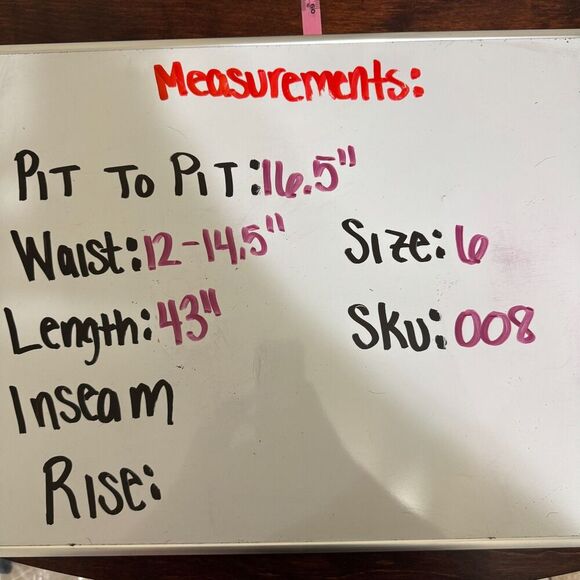 Measurements:
PiT To PiT: 16.5"
Waist: 12-14.5"
Size: 6
Length: 43"
Sku: 008
Inseam
Rise: